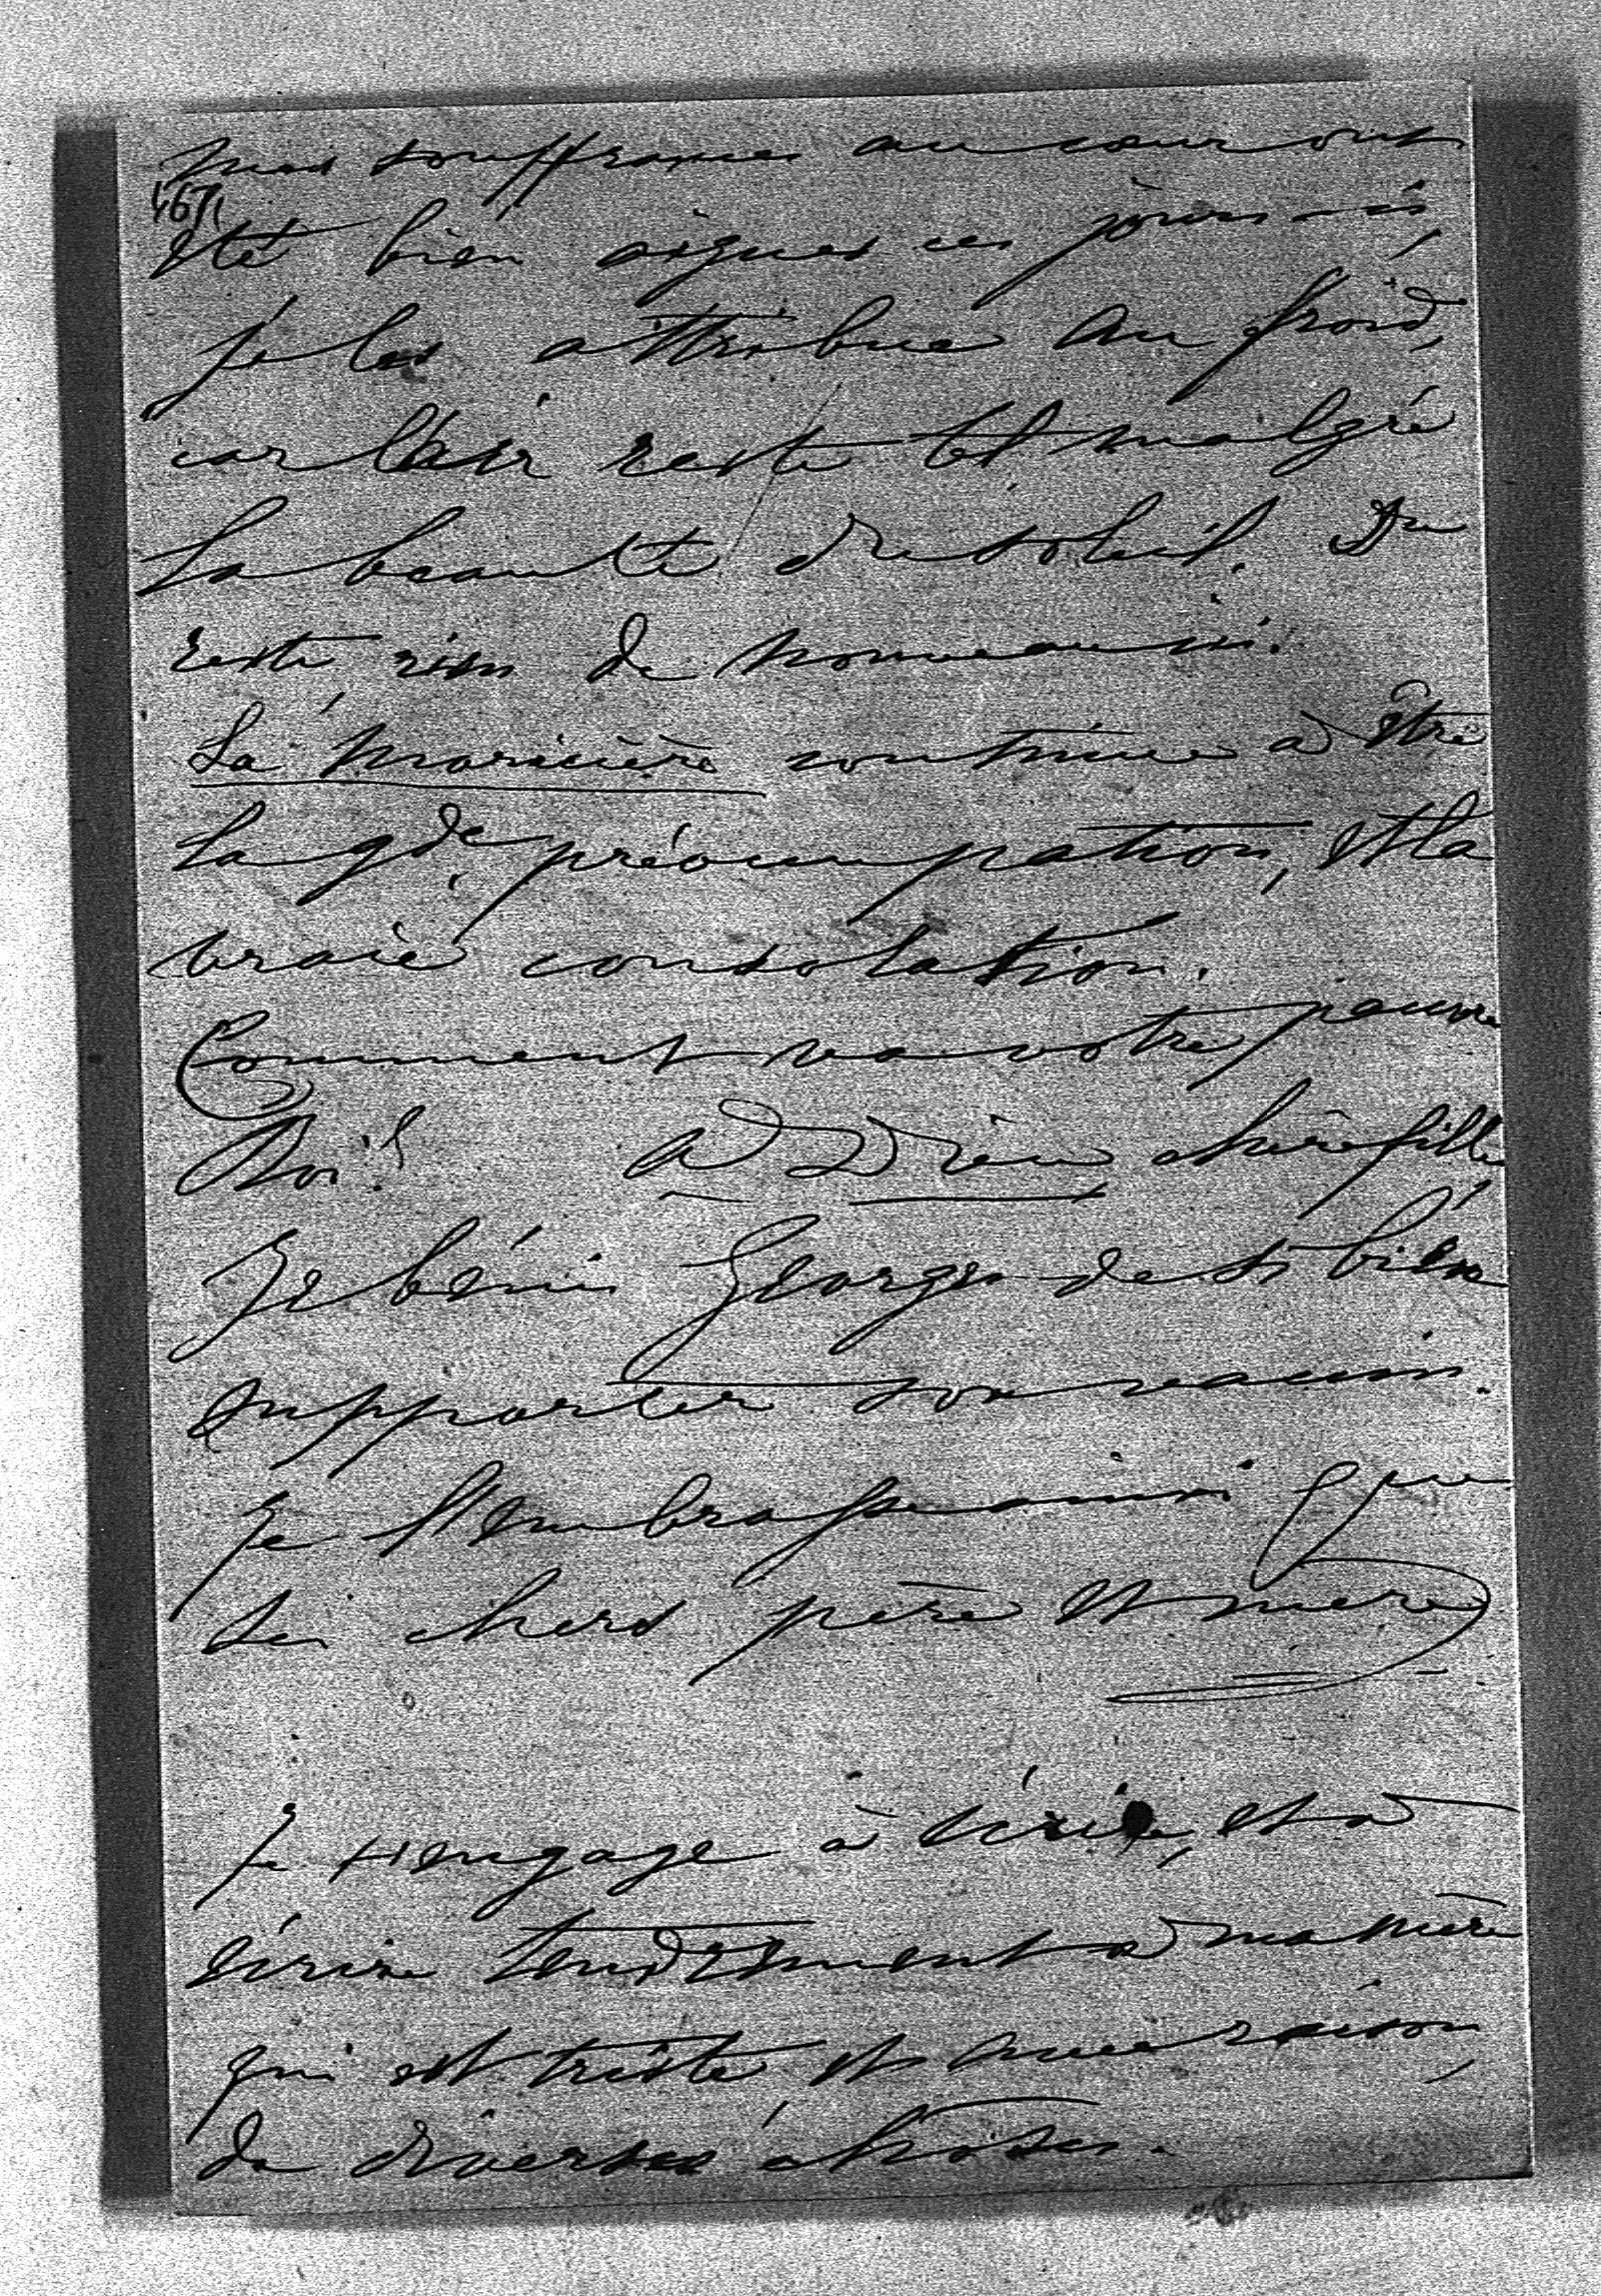 mes souffrances au cœur ont
467
été bien aigues ces jours-ci,
je les attribue au froid,
car l'air reste tel malgré
la beauté du soleil. Du
reste, rien de nouveau ici.
La Moricière continue à être
la gde préoccupation, et la
vraie consolation.
Comment va votre pauvre
Roi? A Dieu chère fille
Je bénis Georges de si bien
supporter son vaccin.
Je l'embrasse ainsi que
ses chers père et mère
Je t'engage à écrire, et à
écrire tendrement à ma mère
qui est triste et avec raison,
de diverses choses.